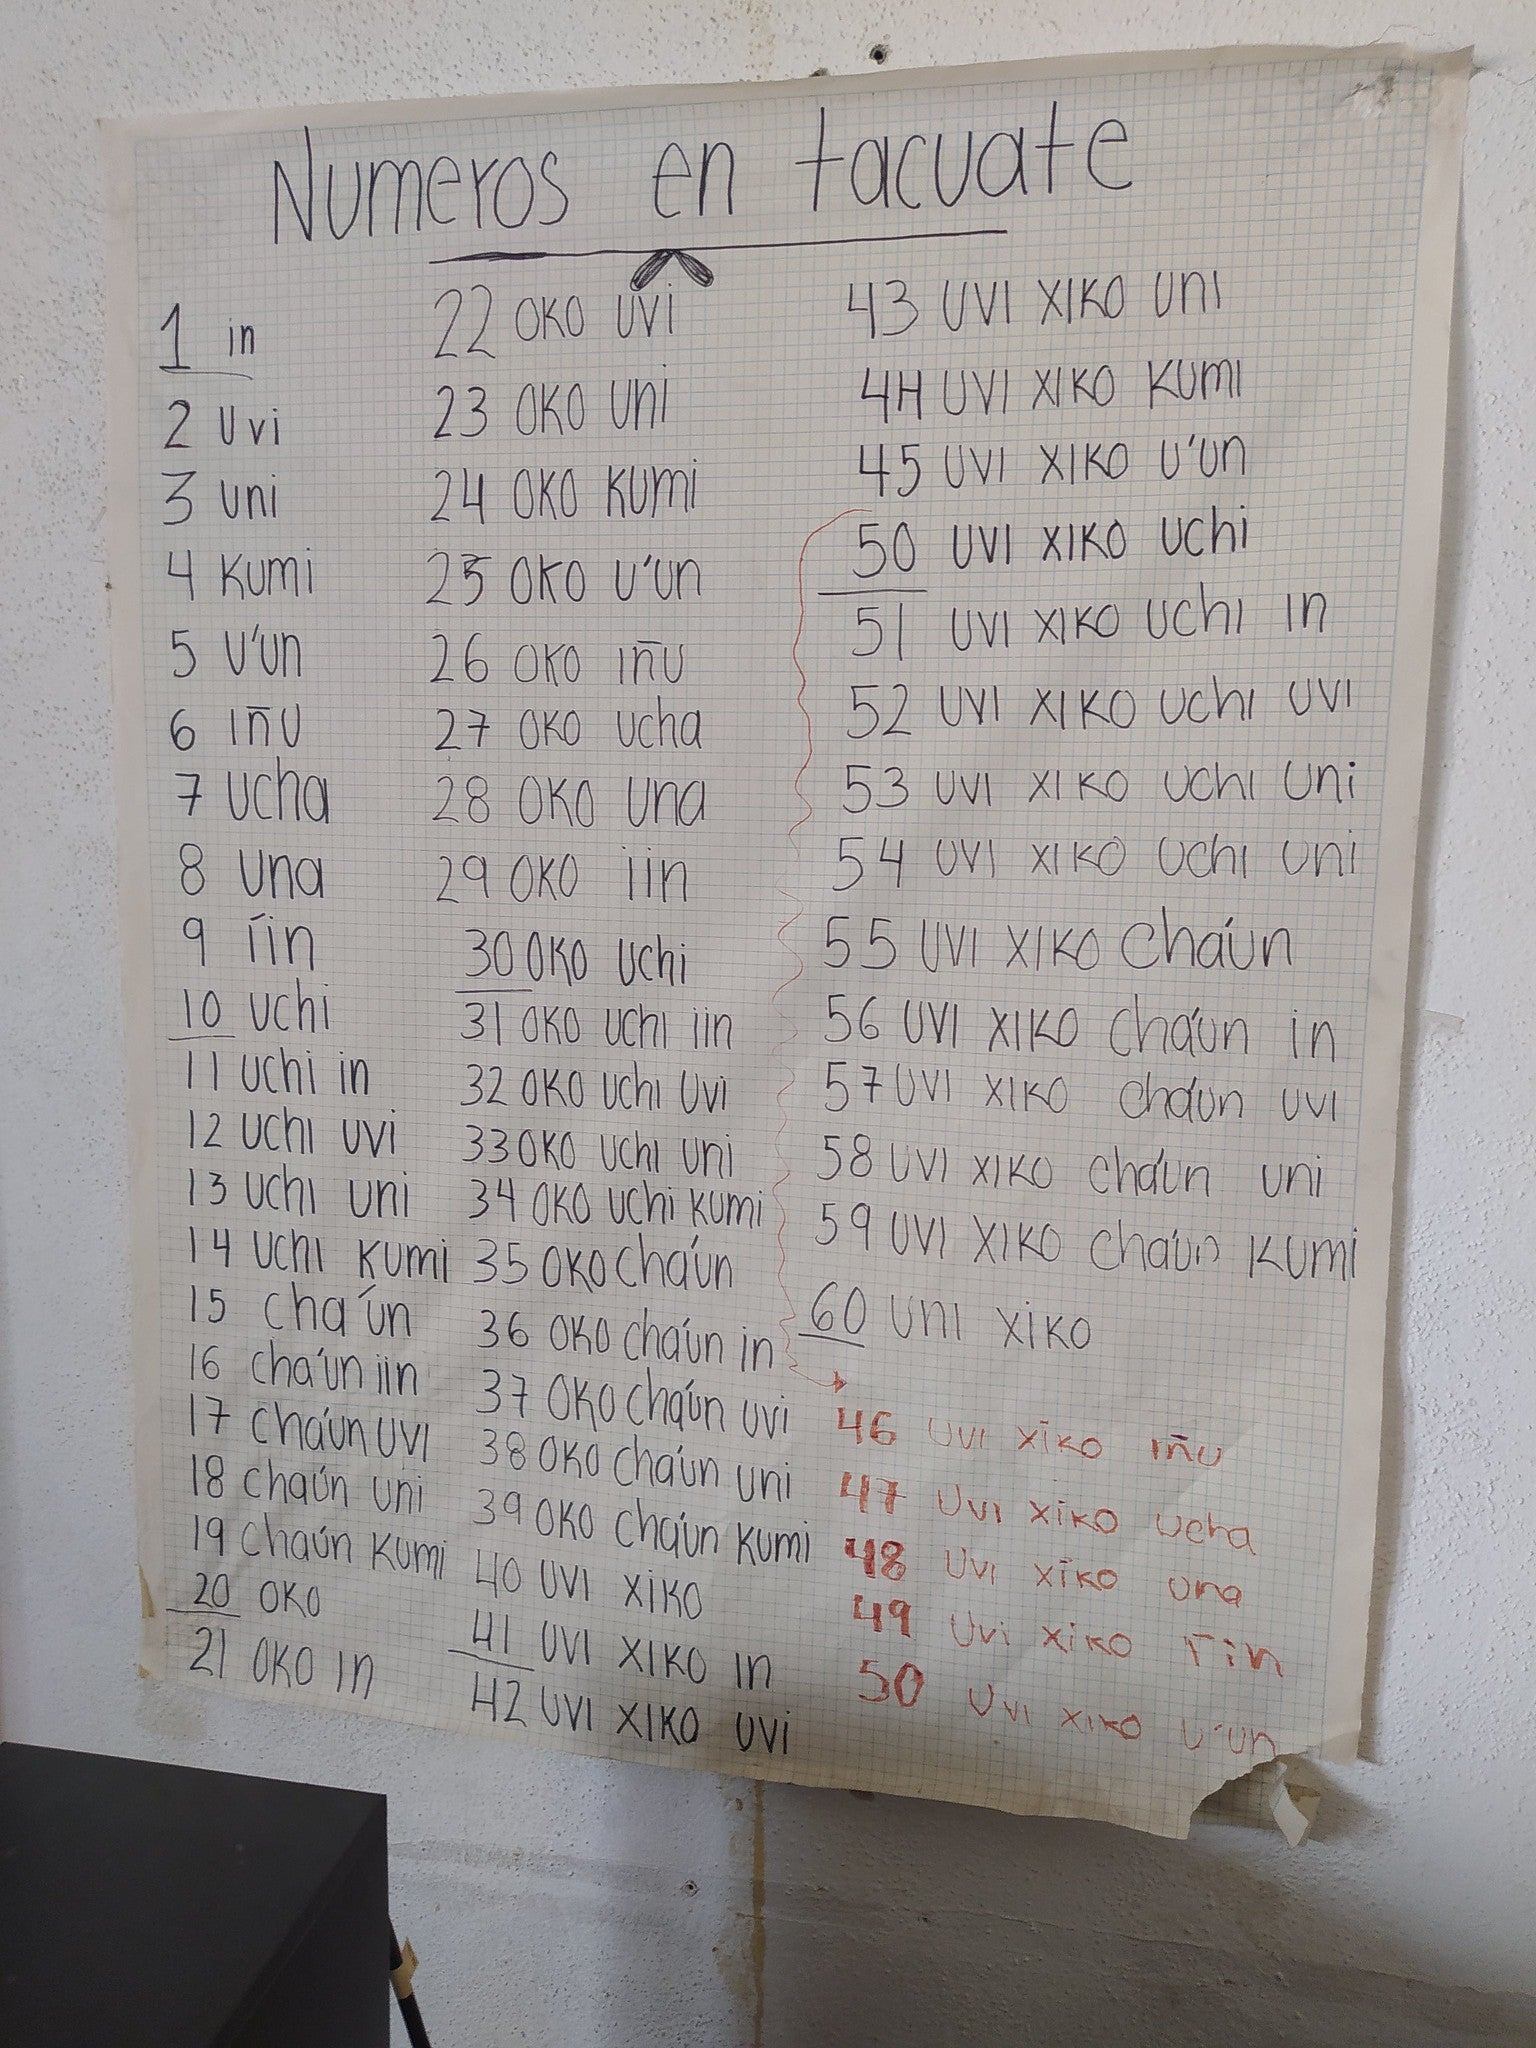 Numeros en tacuate
1 in
2 uvi
3 uni
4 kumi
5 u'un
6 iñu
7 ucha
8 una
9 íin
10 uchi
11 uchi in
12 uchi uvi
13 uchi uni
14 uchi kumi
15 cha'ún
16 cha'ún iin
17 cha'ún uvi
18 chaún uni
19 chaún kumi
20 oko
21 oko in
22 oko uvi
23 oko uni
24 oko kumi
25 oko u'un
26 oko iñu
27 oko ucha
28 oko una
29 oko iin
30 oko uchi
31 oko uchi iin
32 oko uchi uvi
33 oko uchi uni
34 oko uchi kumi
35 oko cha'ún
36 oko cha'ún in
37 oko cha'ún uvi
38 oko cha'ún uni
39 oko cha'ún kumi
40 uvi xiko
41 uvi xiko in
42 uvi xiko uvi
43 uvi xiko uni
44 uvi xiko kumi
45 uvi xiko u'un
50 uvi xiko uchi
51 uvi xiko uchi in
52 uvi xiko uchi uvi
53 uvi xiko uchi uni
54 uvi xiko uchi uni
55 uvi xiko cha'ún
56 uvi xiko cha'ún in
57 uvi xiko cha'ún uvi
58 uvi xiko cha'ún uni
59 uvi xiko cha'ún kumi
60 uni xiko
46 uvi xiko iñu
47 uvi xiko ucha
48 uvi xiko una
49 uvi xiko íin
50 uvi xiko u'un